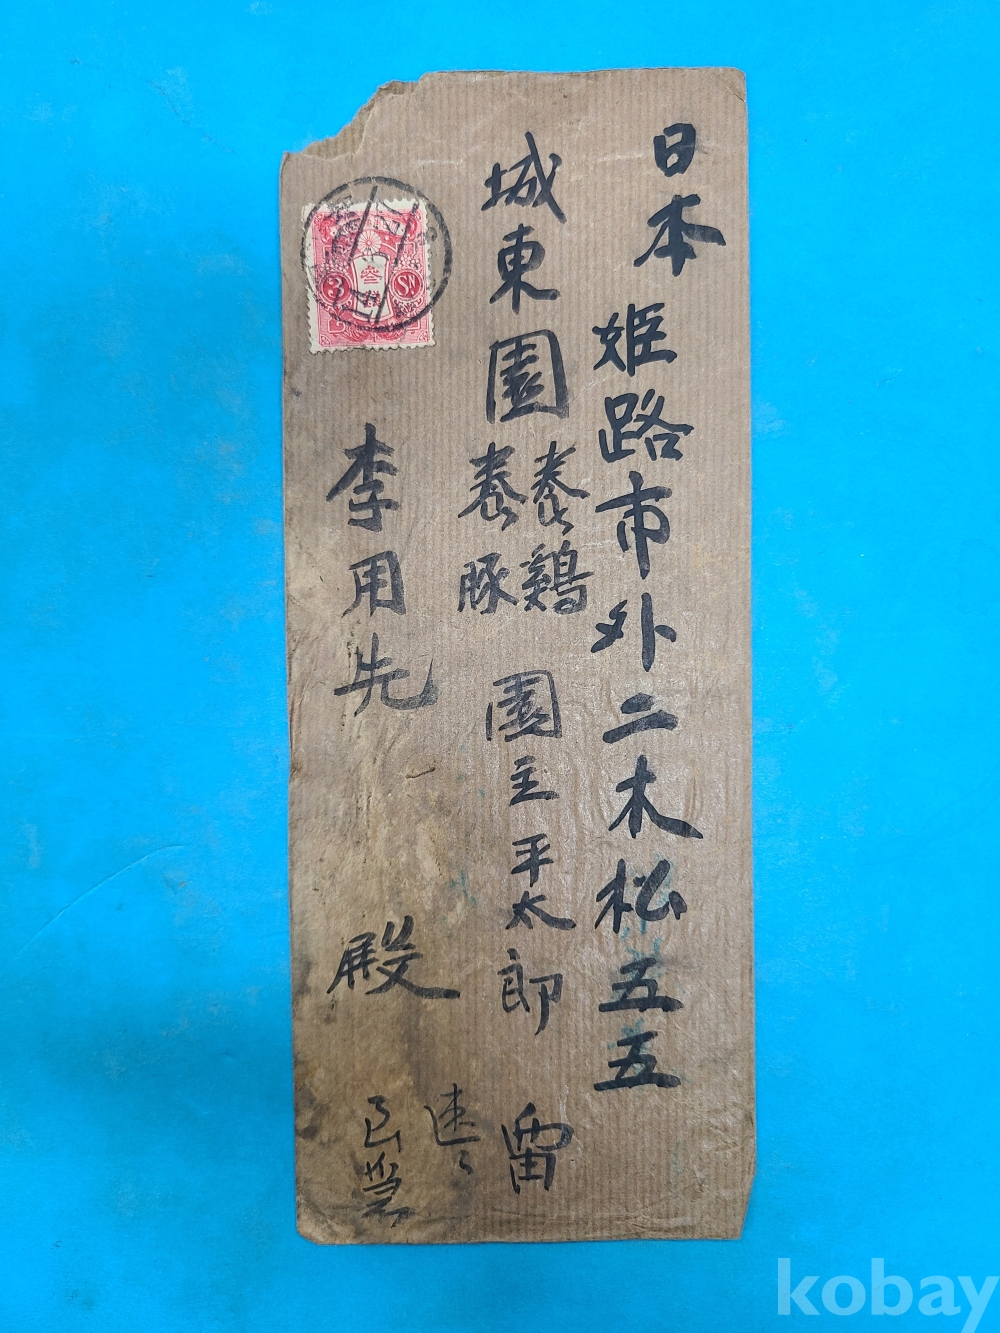 日本 姫路市外二木松五五
城東園 養鶏 養豚 園主 平太郎 留
李用先 殿
速々
3 参銭 Sn
kobay